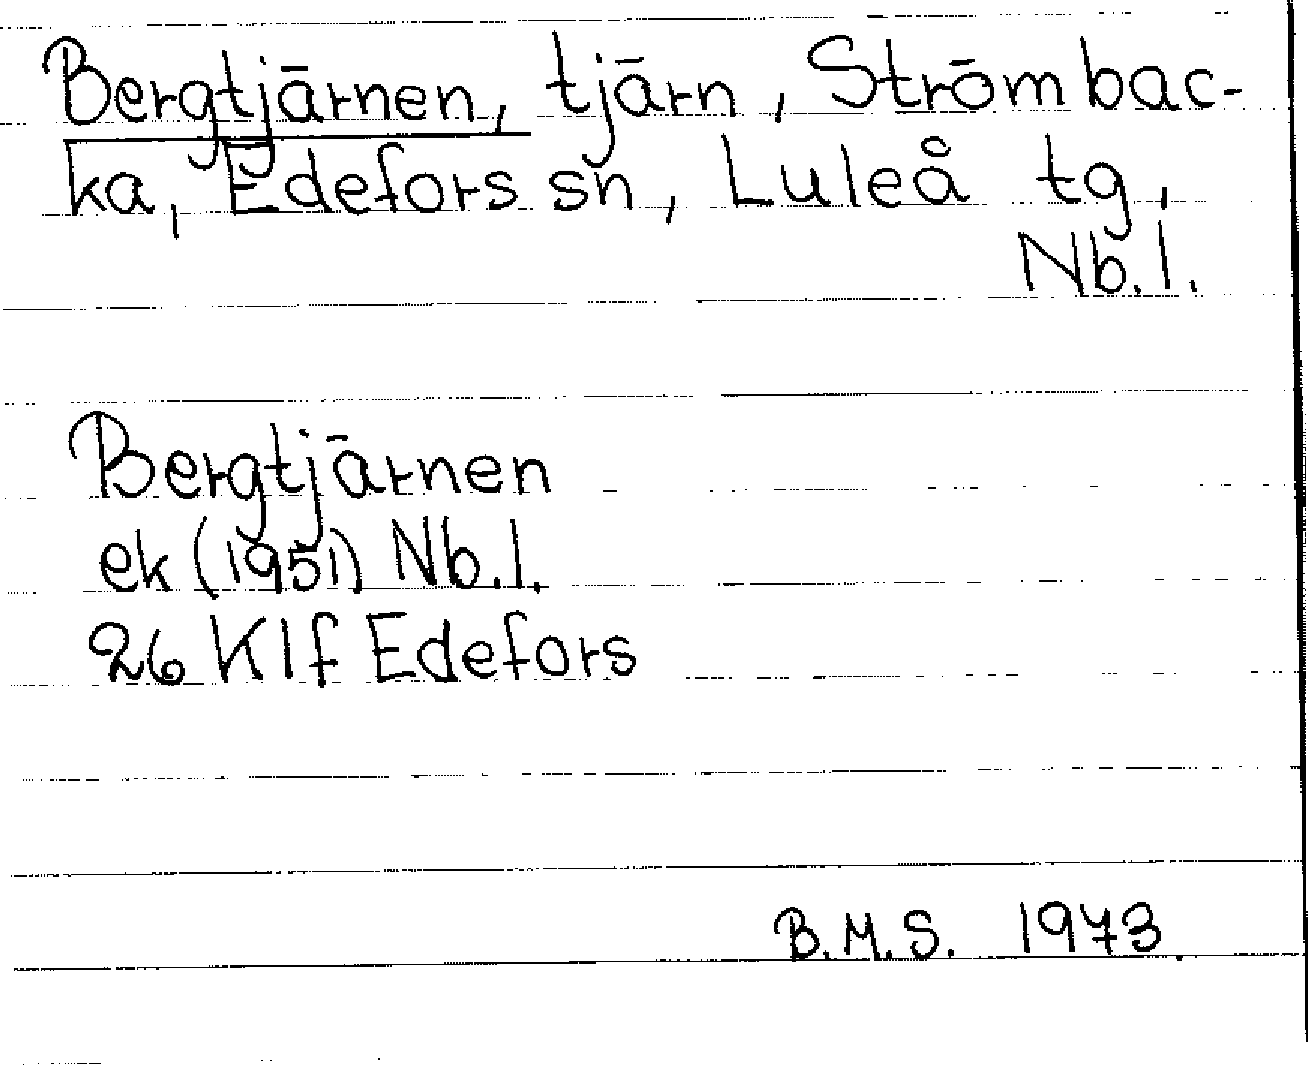 Bergtjärnen, tjärn, Strömbac-
ka, Edefors sn, Luleå tg,
Nb.l.
Bergtjärnen
ek (1951) Nb.l.
26 KLf Edefors
B.M.S. 1973.